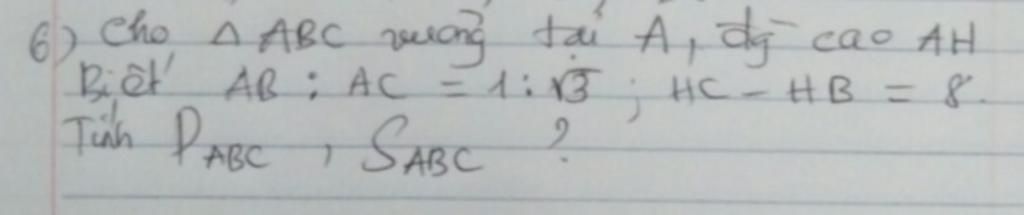 6) Cho △ ABC vuông tại A, đg cao AH
Biết AB : AC = 1 : √3 ; HC - HB = 8.
Tính P_ABC , S_ABC ?